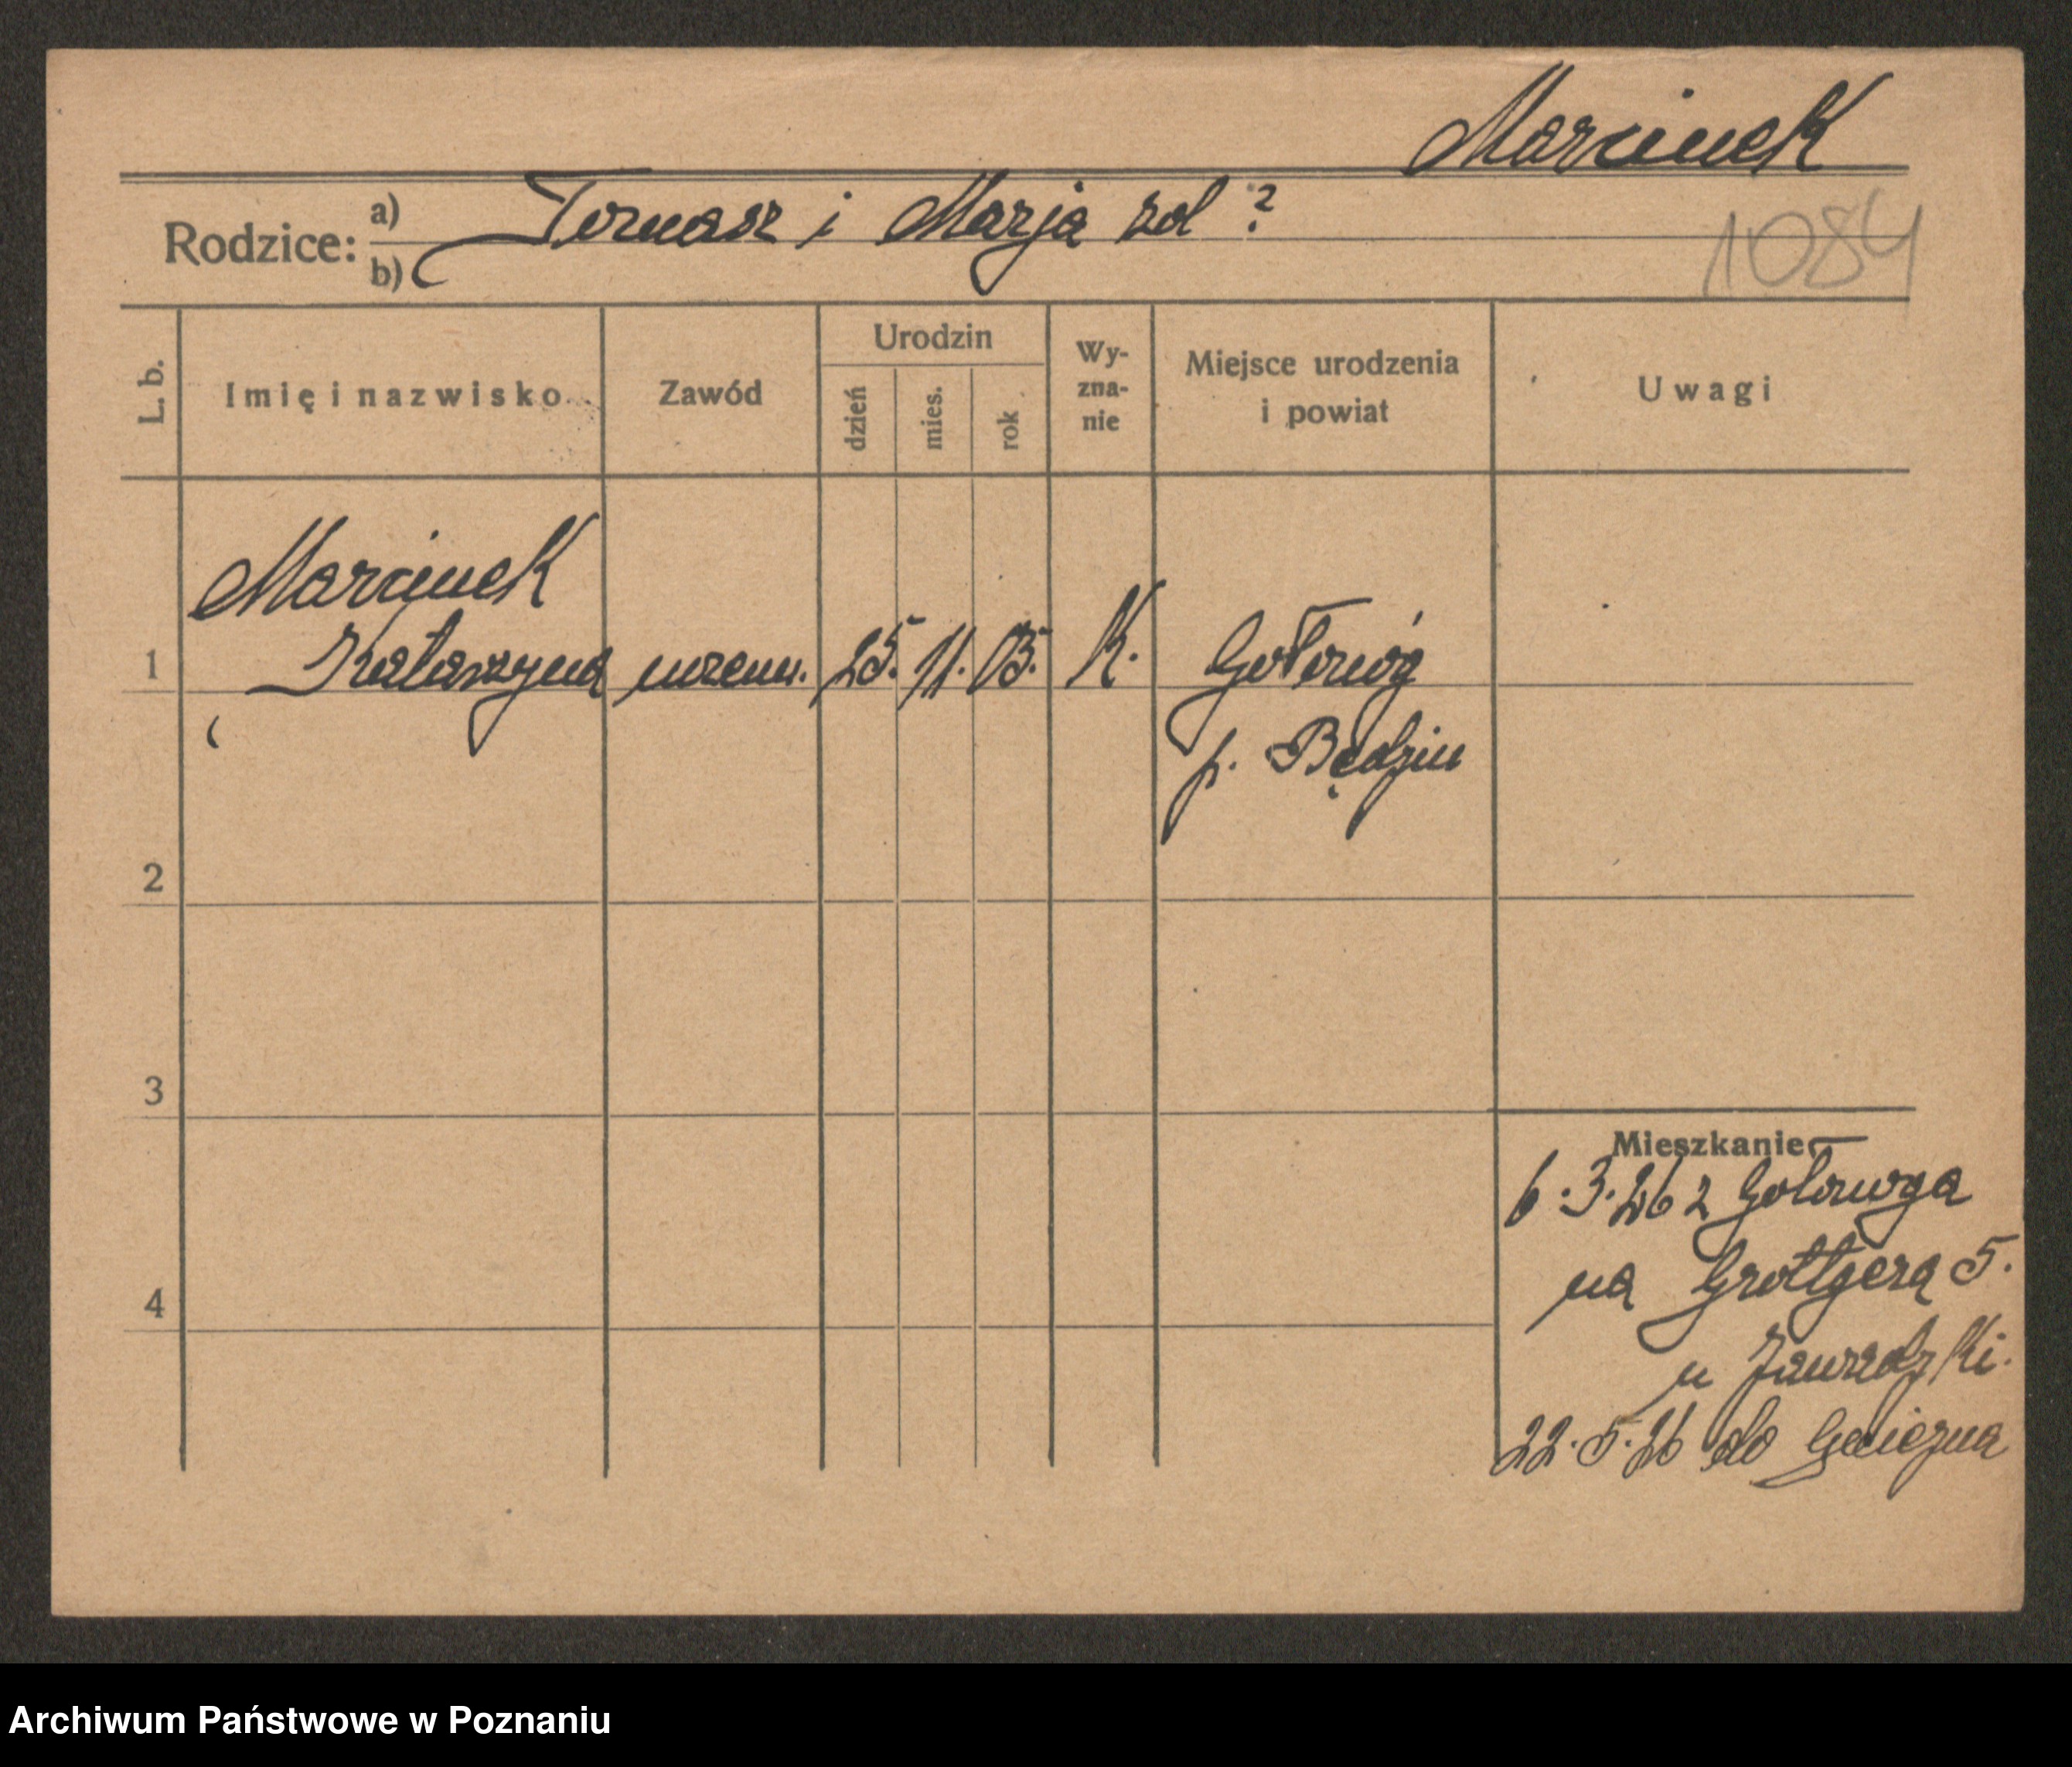 Marcinek
Rodzice: a) Tomasz i Marja zd ?
b)
1084
L. b.
Imię i nazwisko
Zawód
Urodzin
dzień
mies.
rok
Wy-
zna-
nie
Miejsce urodzenia
i powiat
Uwagi
Marcinek
1 Katarzyna uczenn. 25. 11. 05. K. Gołonóg
p. Będzin
2
3
4
Mieszkanie
6.3.26 z Gołonoga
na Grottgera 5.
u Zawadzki.
22.5.26 do Gniezna
Archiwum Państwowe w Poznaniu